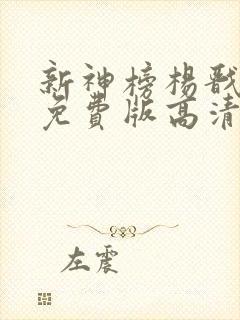 新神榜杨戬
免费版高清
左震